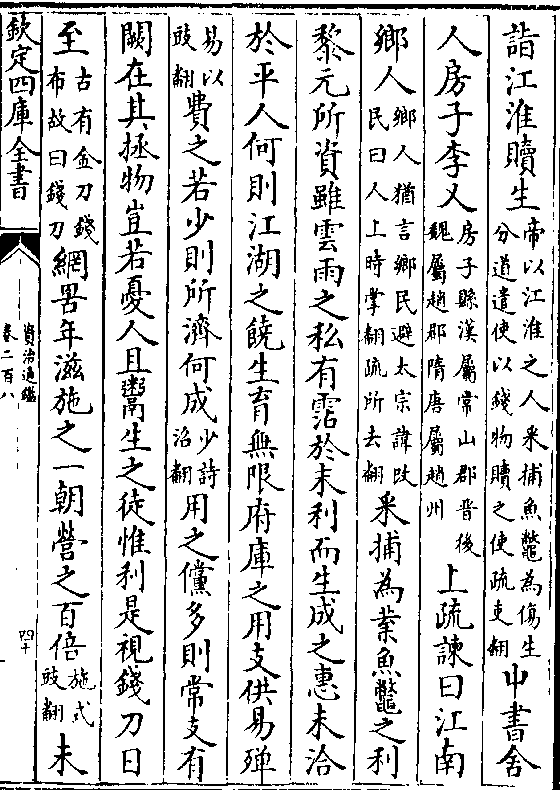 詣江淮贖生帝以江淮之人采捕魚鼈為傷生分道遣使以錢物贖之使疏吏翻中書舍
人房子李乂房子縣漢屬常山郡晉後魏屬趙郡隋唐屬趙州上疏諫曰江南
鄉人鄉人猶言鄉民避太宗諱改民曰人上時掌翻疏所去翻采捕為業魚鼈之利
黎元所資雖雲雨之私有霑於末利而生成之惠未洽
於平人何則江湖之饒生育無限府庫之用支供易殫
易以豉翻費之若少則所濟何成少詩沼翻用之儻多則常支有
闕在其拯物豈若憂人且鬻生之徒惟利是視錢刀日
至古有金刀錢布故曰錢刀網罟年滋施之一朝營之百倍施式豉翻未
欽定四庫全書
資治通鑑
卷二百八
四十